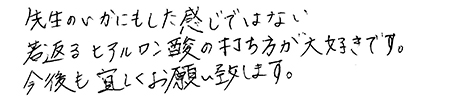 先生のいかにもした感じではない
若返るヒアルロン酸の打ち方が大好きです。
今後も宜しくお願い致します。